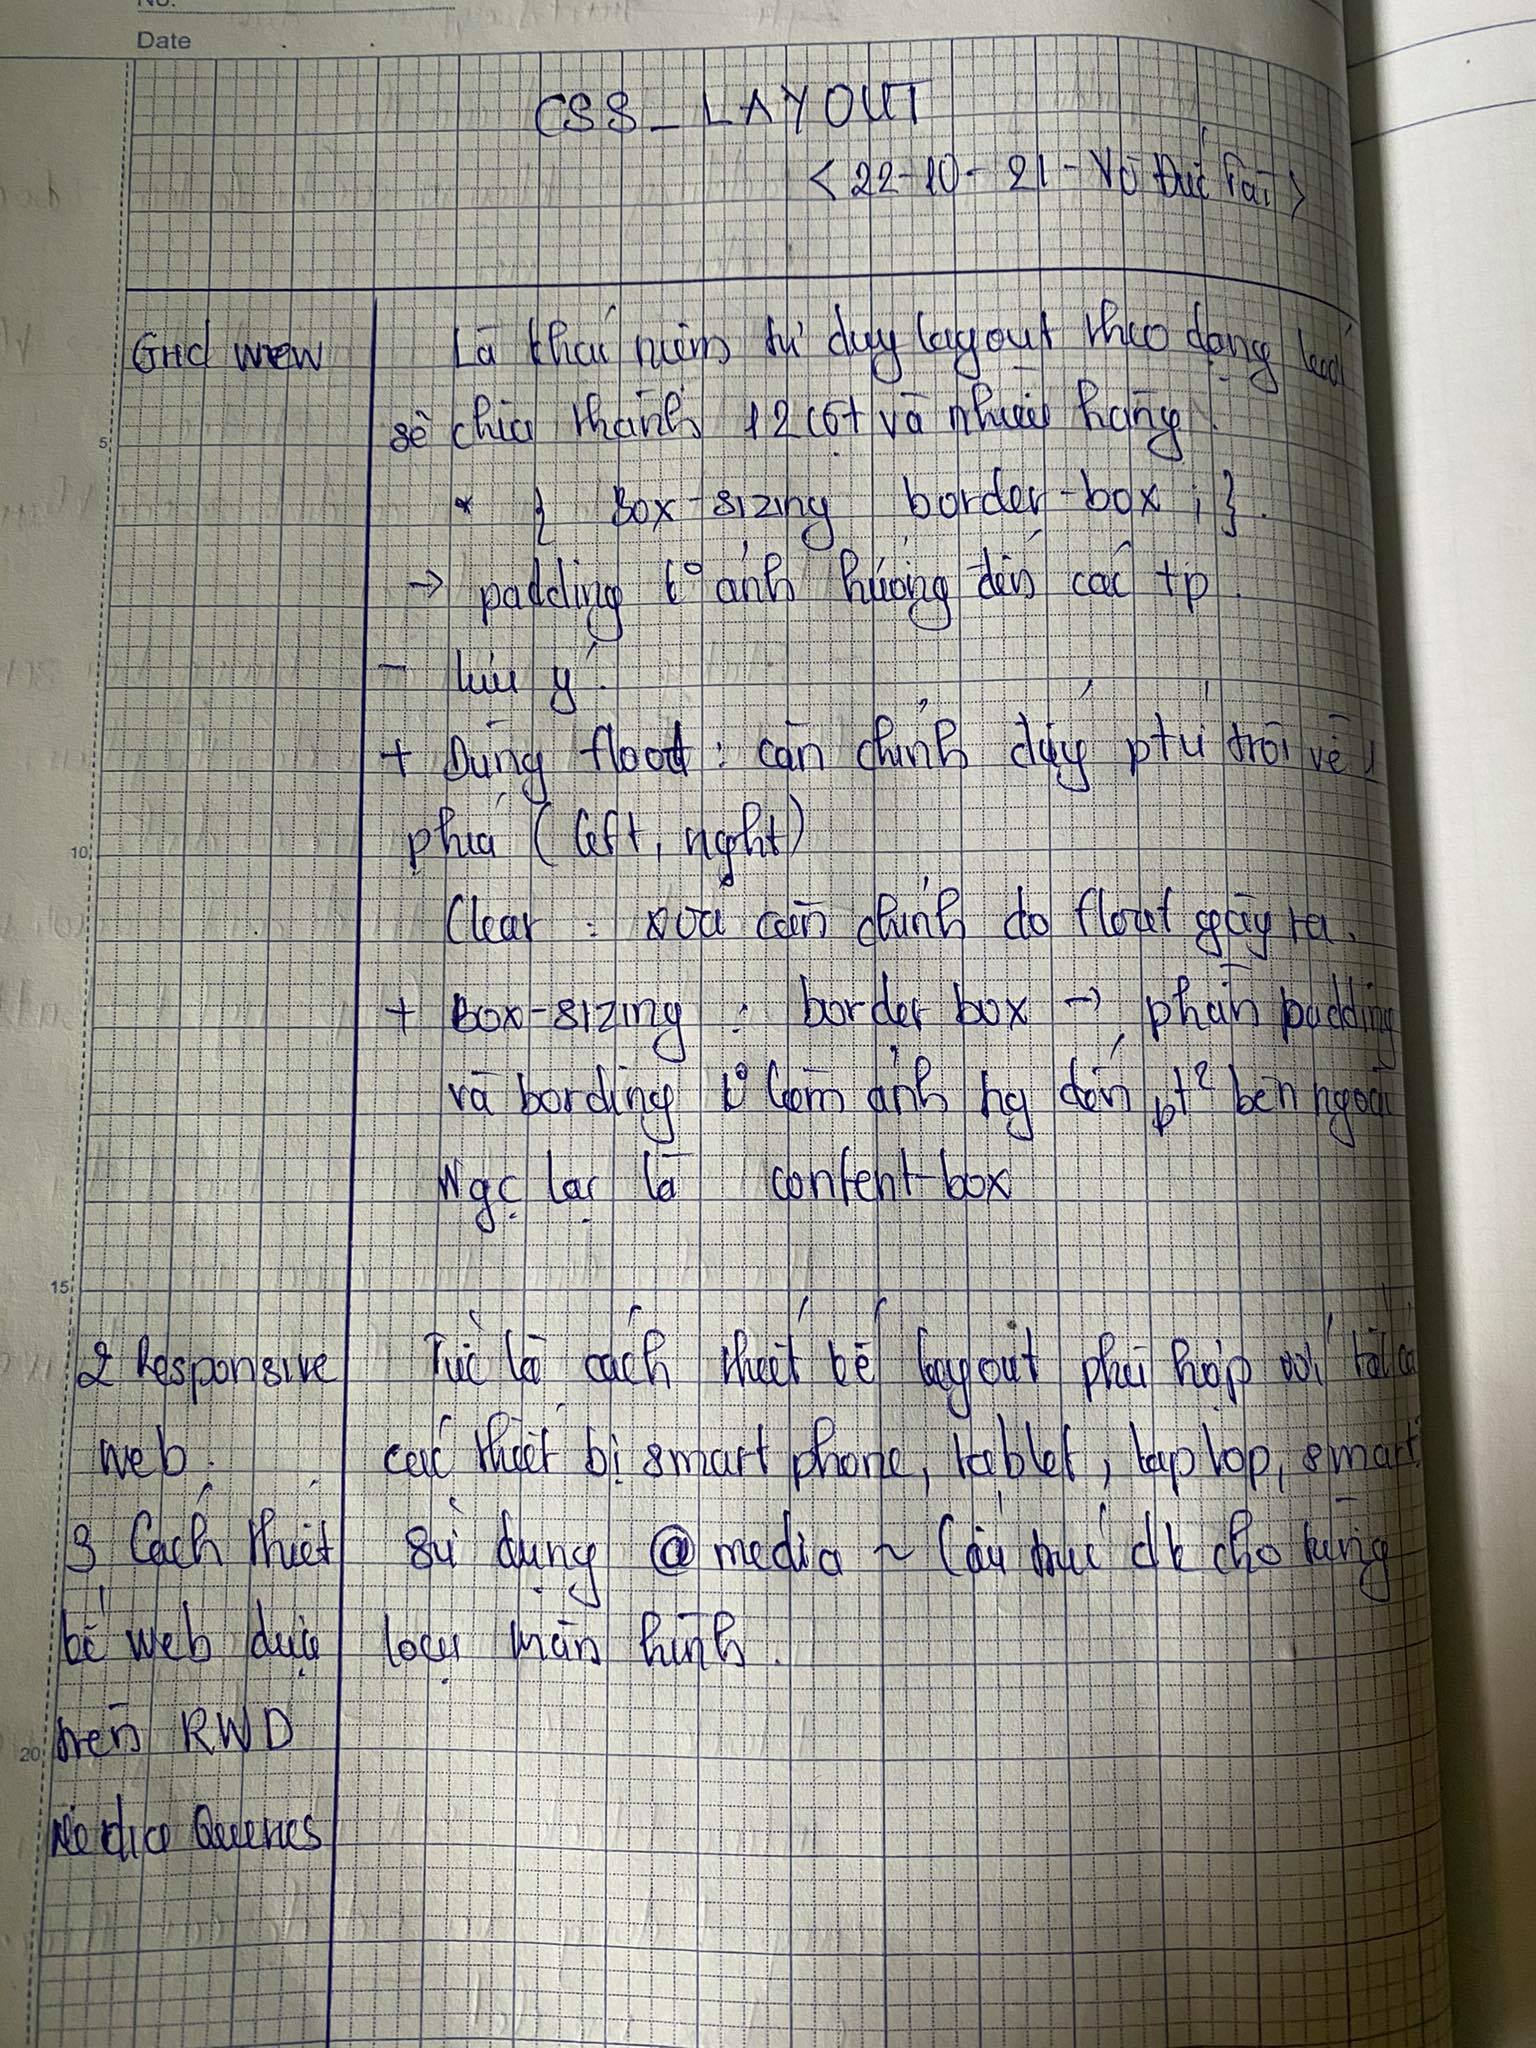 No.
Date
CSS_LAYOUT
<22-10-21-Võ Đức Tài>
Grid view
Là khái niệm tư duy layout theo dạng lưới
sẽ chia thành 12 cột và nhiều hàng.
* { Box-sizing border-box ; }.
→ padding k° ảnh hưởng đến các tp.
- lưu ý:
+ Dùng float : căn chỉnh đẩy ptử trôi về 1
phía (left, right)
Clear : xoá căn chỉnh do float gây ra.
+ Box-sizing : border box → phần padding
và bording k° làm ảnh hg đến pt² bên ngoài
Ngc lại là content-box
2 Responsive
web.
Tức là cách thiết kế layout phù hợp với tất cả
các thiết bị smart phone, tablet, laptop, smart
3 Cách thiết
kế web dựa
trên RWD
Media Queries
Sử dụng @ media ~ Cấu trúc đk cho từng
loại màn hình.
5
10
15
20